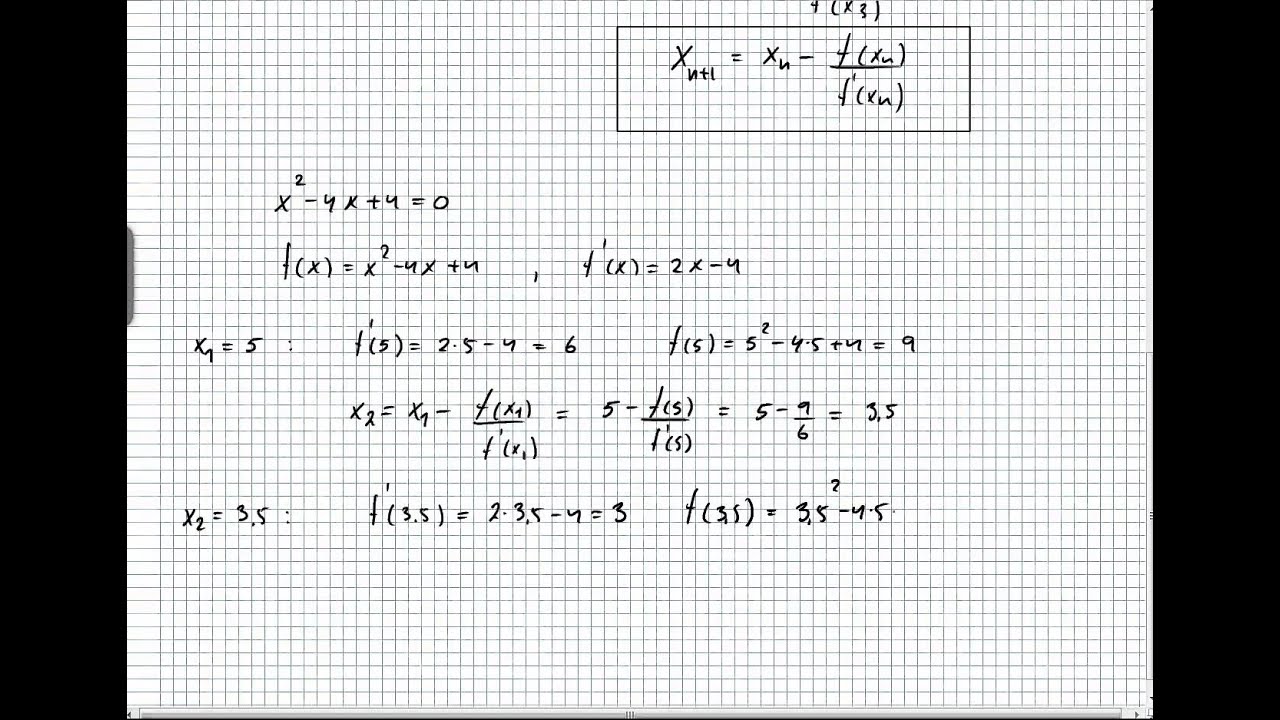 f(x₃)
Xₙ₊₁ = xₙ − f(xₙ) / f'(xₙ)
x² − 4x + 4 = 0
f(x) = x² − 4x + 4 , f'(x) = 2x − 4
x₁ = 5 : f'(5) = 2·5 − 4 = 6 f(5) = 5² − 4·5 + 4 = 9
x₂ = x₁ − f(x₁) / f'(x₁) = 5 − f(5) / f'(5) = 5 − 9/6 = 3.5
x₂ = 3.5 : f'(3.5) = 2·3.5 − 4 = 3 f(3.5) = 3.5² − 4·5